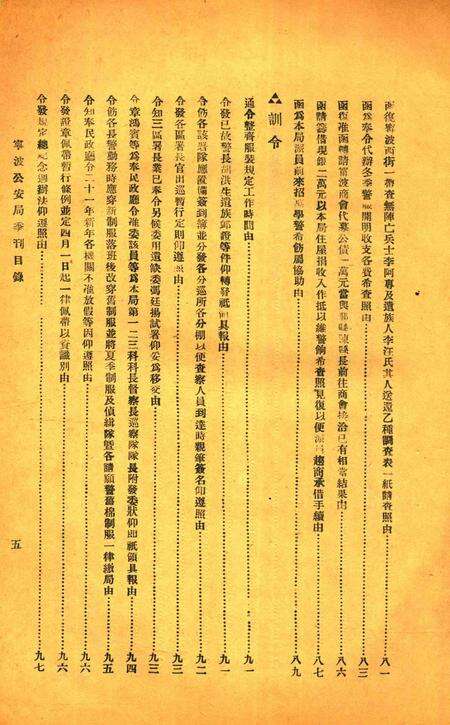 函復寧波西街一帶查無陣亡兵士李阿專及遺族人李汪氏其人送還乙種調查表一紙請查照由……八一
函爲奉令代辦冬季警服開明收支各費希查照由……八三
函復准函轉請寧波商會代募公債二萬元當與鄞縣陳縣長前往商會接洽已有相當結果由……八六
函請籌借現銀二萬元以本局住屋捐收入作抵以維警餉希查照見復以便派員趨商承借手續由……八七
函爲本局派員前來招募學警希飭屬協助由……八九
訓令
通令整齊服裝規定工作時間由……九一
令發已故警長胡洪生遺族卹券等件仰轉發祗領具報由……九一
令飭各該署隊應置備簽到簿並分發各分巡所各分棚以便查察人員到達時親筆簽名仰遵照由……九二
令發各區署長官出巡暫行定則仰遵照由……九三
令知三區署長業已奉令另候委用遺缺委馮廷揚試署仰妥爲移交由……九三
令章鴻賓等爲奉民政廳令准委該員等爲本局第一二三科科長督察長巡察隊隊長附發委狀仰即祗領具報由……九四
令飭各長警勤務時應穿新制服落班後改穿舊制服並將夏季制服及偵緝隊暨各請願警舊棉制服一律繳局由……九五
令知奉民政廳令二十一年新年各機關不准放假等因仰遵照由……九六
令發證章佩帶暫行條例並定四月一日起一律佩帶以資識別由……九六
令發規定總理紀念週辦法仰遵照由……九七
寧波公安局季刊目錄
五